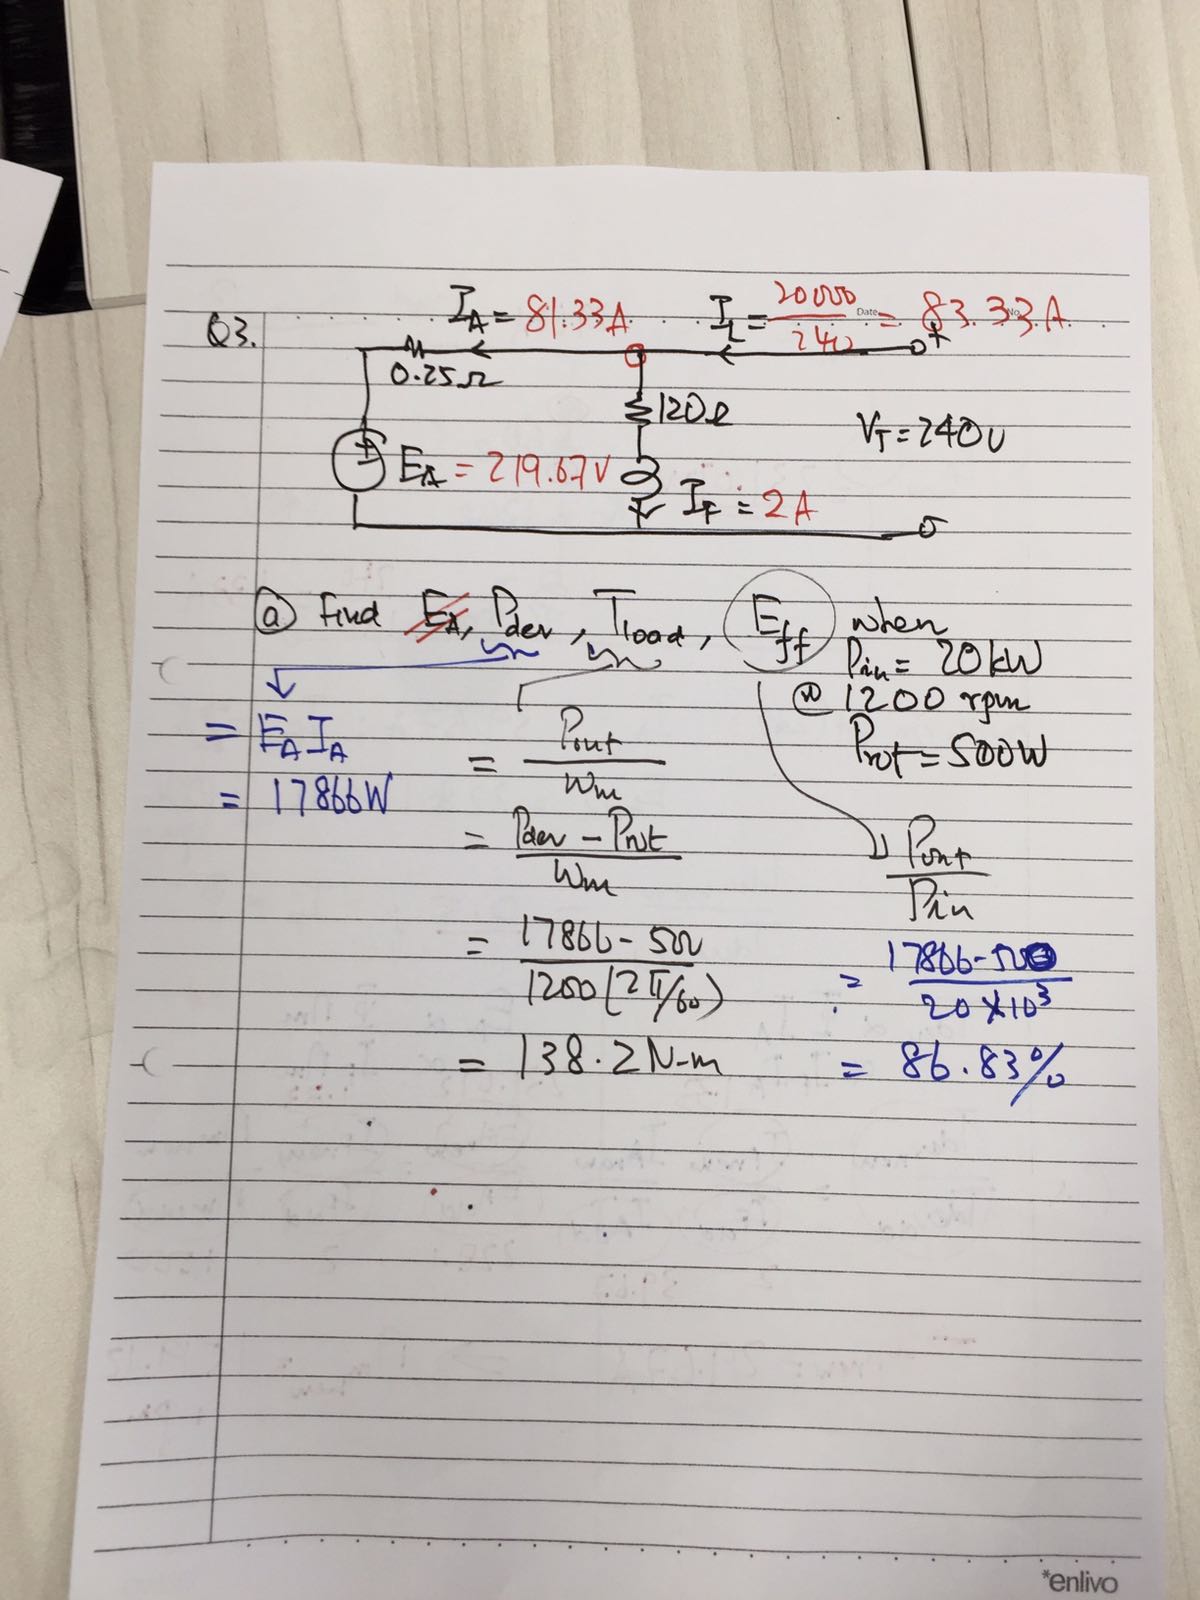 Q3.
I_A = 81.33A
I_L = 20000/240 = 83.33A
Date
No
+
0.25Ω
120Ω
V_T = 240V
+
E_A = 219.67V
I_F = 2A
-
ⓐ Find E_A, Pdev, Tload, Eff when
Pin = 20kW
@ 1200 rpm
Prot = 500W
= E_A I_A
= 17866W
= Pout/Wm
= Pdev - Prot/Wm
= 17866 - 500/1200(2π/60)
= 138.2 N-m
Pout/Pin
= 17866-500/20×10³
= 86.83%
*enlivo